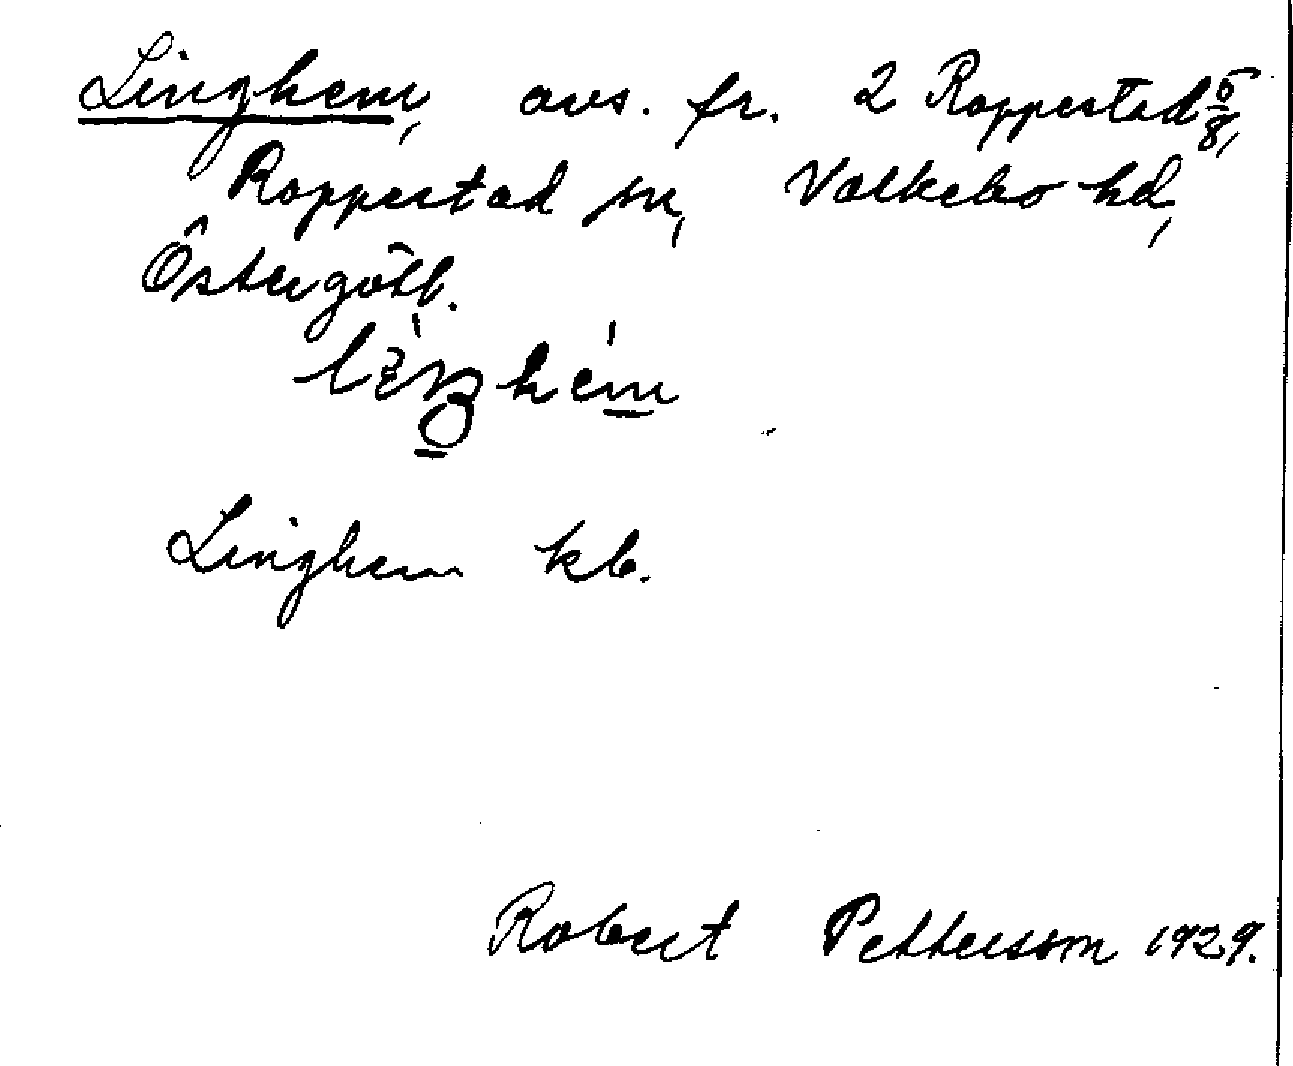 Linghem, avs. fr. 2 Rappestad 5/8,
Rappestad sn, Valkebo hd,
Östergötl.
Linghem kb.
Robert Pettersson 1929.